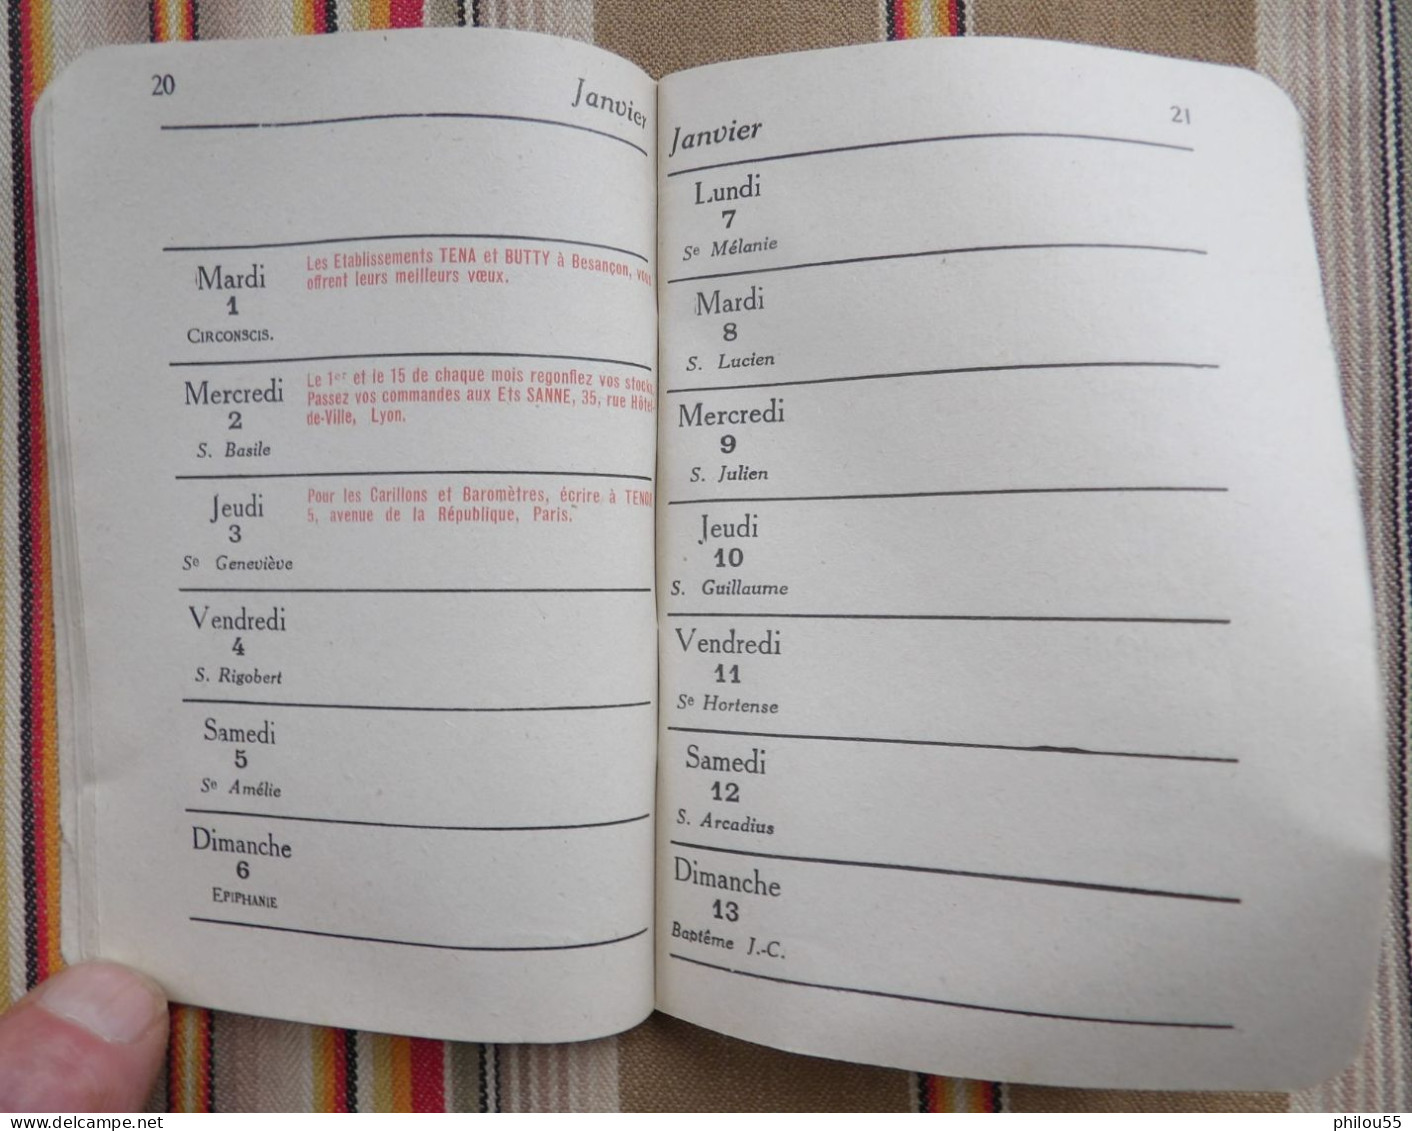 20
Janvier
Mardi
1
CIRCONSCIS.
Les Etablissements TENA et BUTTY à Besançon, vous
offrent leurs meilleurs vœux.
Mercredi
2
S. Basile
Le 1er et le 15 de chaque mois regonflez vos stocks.
Passez vos commandes aux Ets SANNE, 35, rue Hôtel-
de-Ville, Lyon.
Jeudi
3
Se Geneviève
Pour les Carillons et Baromètres, écrire à
5, avenue de la République, Paris.
Vendredi
4
S. Rigobert
Samedi
5
Se Amélie
Dimanche
6
EPIPHANIE
Janvier
21
Lundi
7
Se Mélanie
Mardi
8
S. Lucien
Mercredi
9
S. Julien
Jeudi
10
S. Guillaume
Vendredi
11
Se Hortense
Samedi
12
S. Arcadius
Dimanche
13
Baptême J.-C.
delcampe.net
philou55